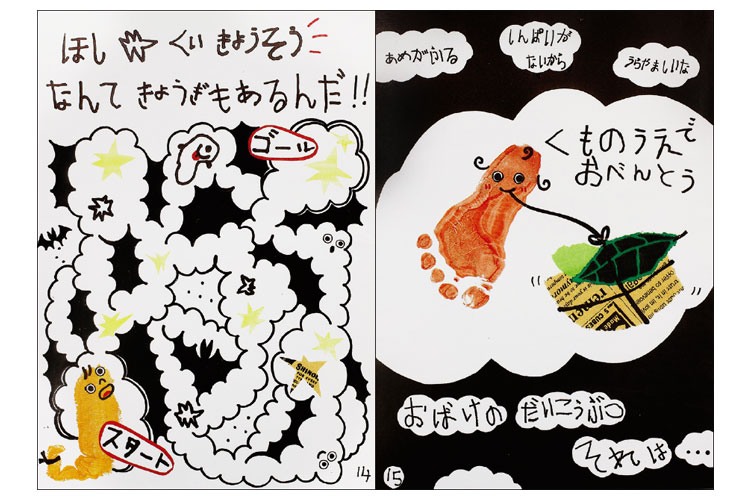 ほし くい きょうそう
なんて きょうぎもあるんだ!!
ゴール
スタート
14
しんぱいが
ないから
うらやましいな
くものうえで
おべんとう
おばけの だいこうぶつ
それは・・・・
15